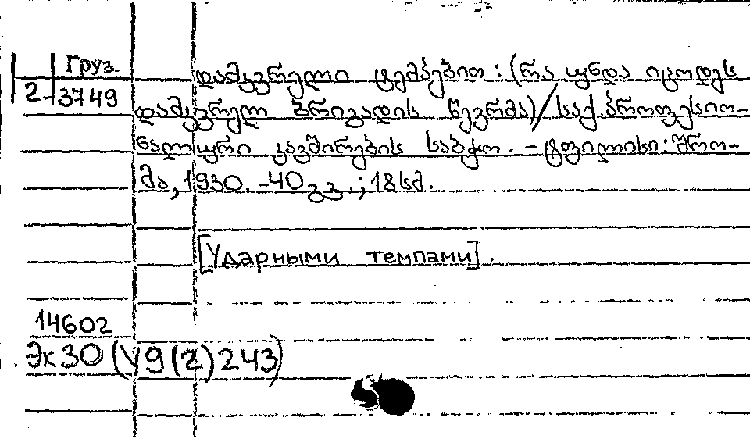 Груз.
2-3749
დამკვრელი ტემპებით: (რა უნდა იცოდეს
დამკვრელ ბრიგადის წევრმა)/საქ. პროფესიო-
ნალური კავშირების საბჭო. - ტფილისი: შრო-
მა, 1930. -40 გვ.; 18 სმ.
[Ударными темпами].
14602
Эк30(У9(2)243)